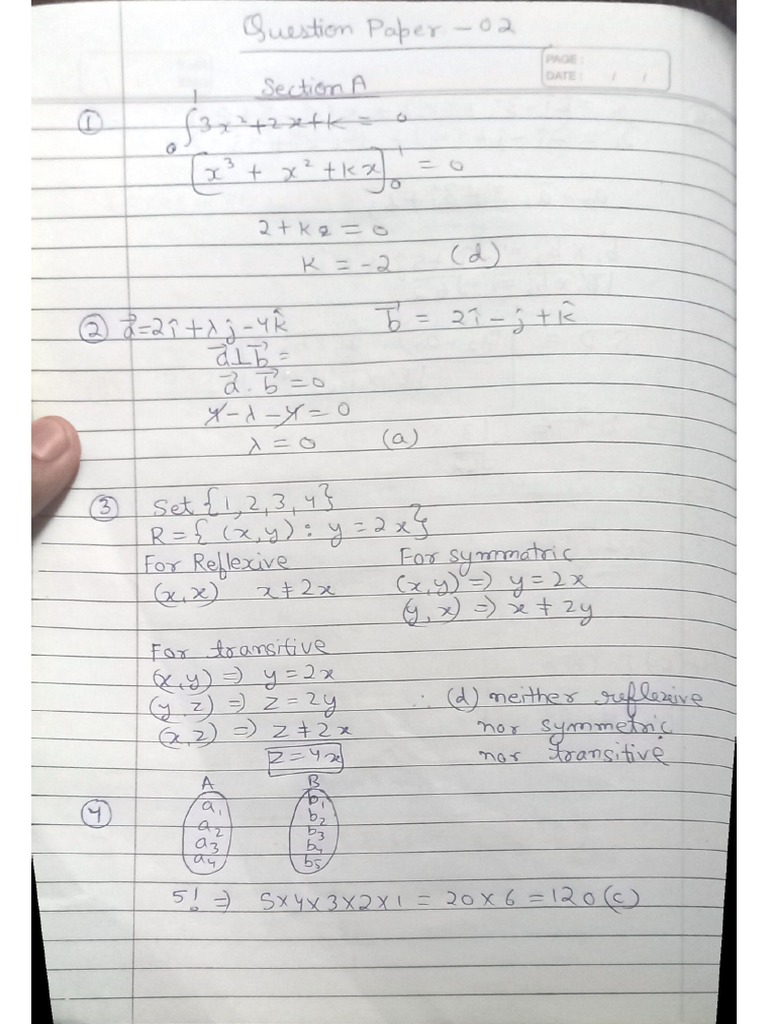 Question Paper - 02
PAGE :
DATE : / /
Section A
① ∫₀¹ 3x² + 2x + k = 0
[x³ + x² + kx]₀¹ = 0
2 + k = 0
k = -2 (d)
② a⃗ = 2î + λj - 4k̂ b⃗ = 2î - j + k̂
a⃗ ⊥ b⃗ =
a⃗ . b⃗ = 0
4 - λ - 4 = 0
λ = 0 (a)
③ Set {1, 2, 3, 4}
R = { (x, y) : y = 2x}
For Reflexive For symmatric
(x, x) x ≠ 2x (x, y) => y = 2x
(y, x) => x ≠ 2y
For transitive
(x, y) => y = 2x
(y, z) => z = 2y ∴ (d) neither reflexive
(x, z) => z ≠ 2x nor symmetric
z = 4x nor transitive
④ A B
a₁ b₁
a₂ b₂
a₃ b₃
a₄ b₄
b₅
5! => 5×4×3×2×1 = 20×6 = 120 (c)